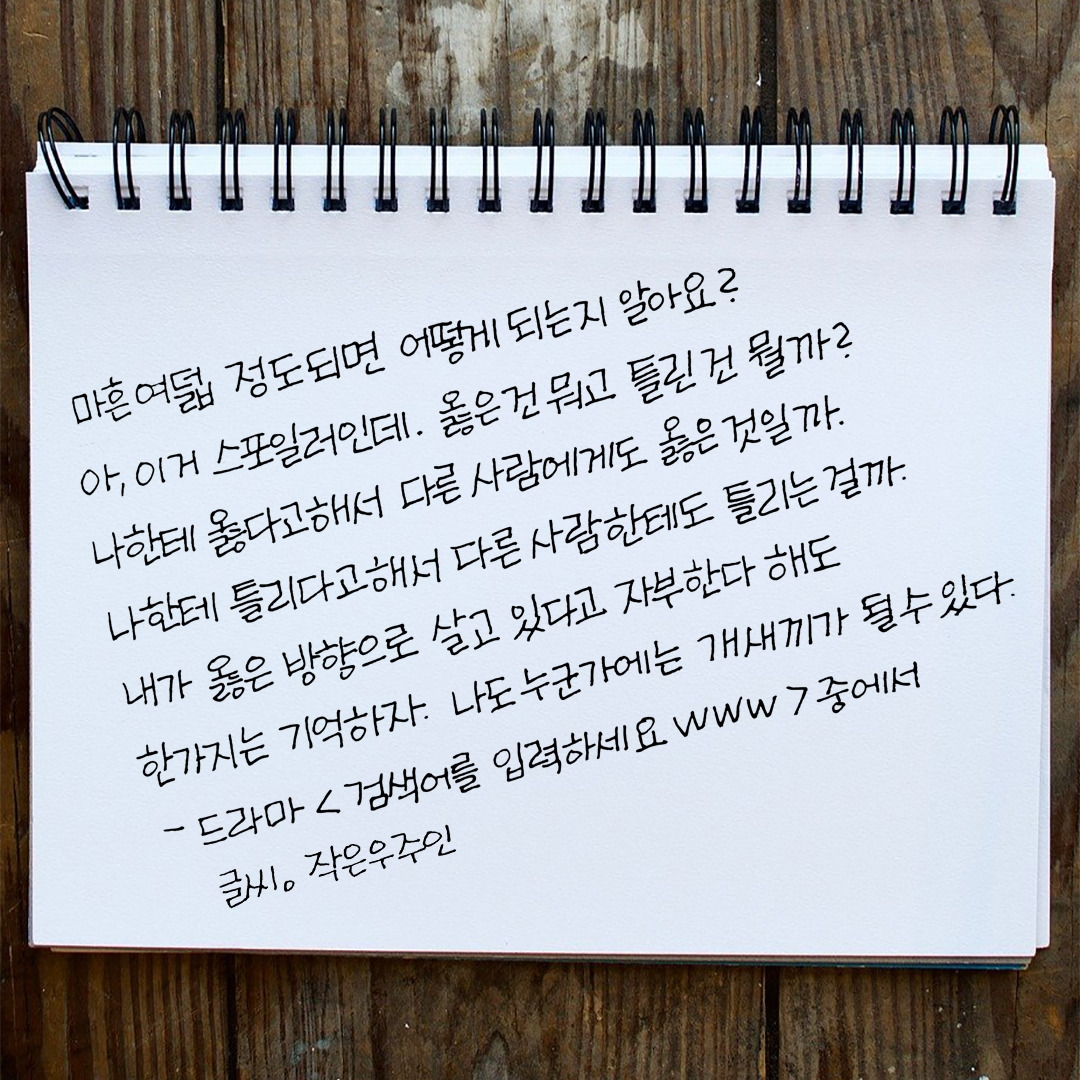 마흔여덟 정도되면 어떻게 되는지 알아요?
아, 이거 스포일러인데. 옳은건 뭐고 틀린건 뭘까?
나한테 옳다고해서 다른 사람에게도 옳은것일까.
나한테 틀리다고해서 다른 사람한테도 틀리는걸까.
내가 옳은 방향으로 살고 있다고 자부한다 해도
한가지는 기억하자. 나도 누군가에는 개새끼가 될수있다.
- 드라마 <검색어를 입력하세요 WWW> 중에서
글씨。작은우주인